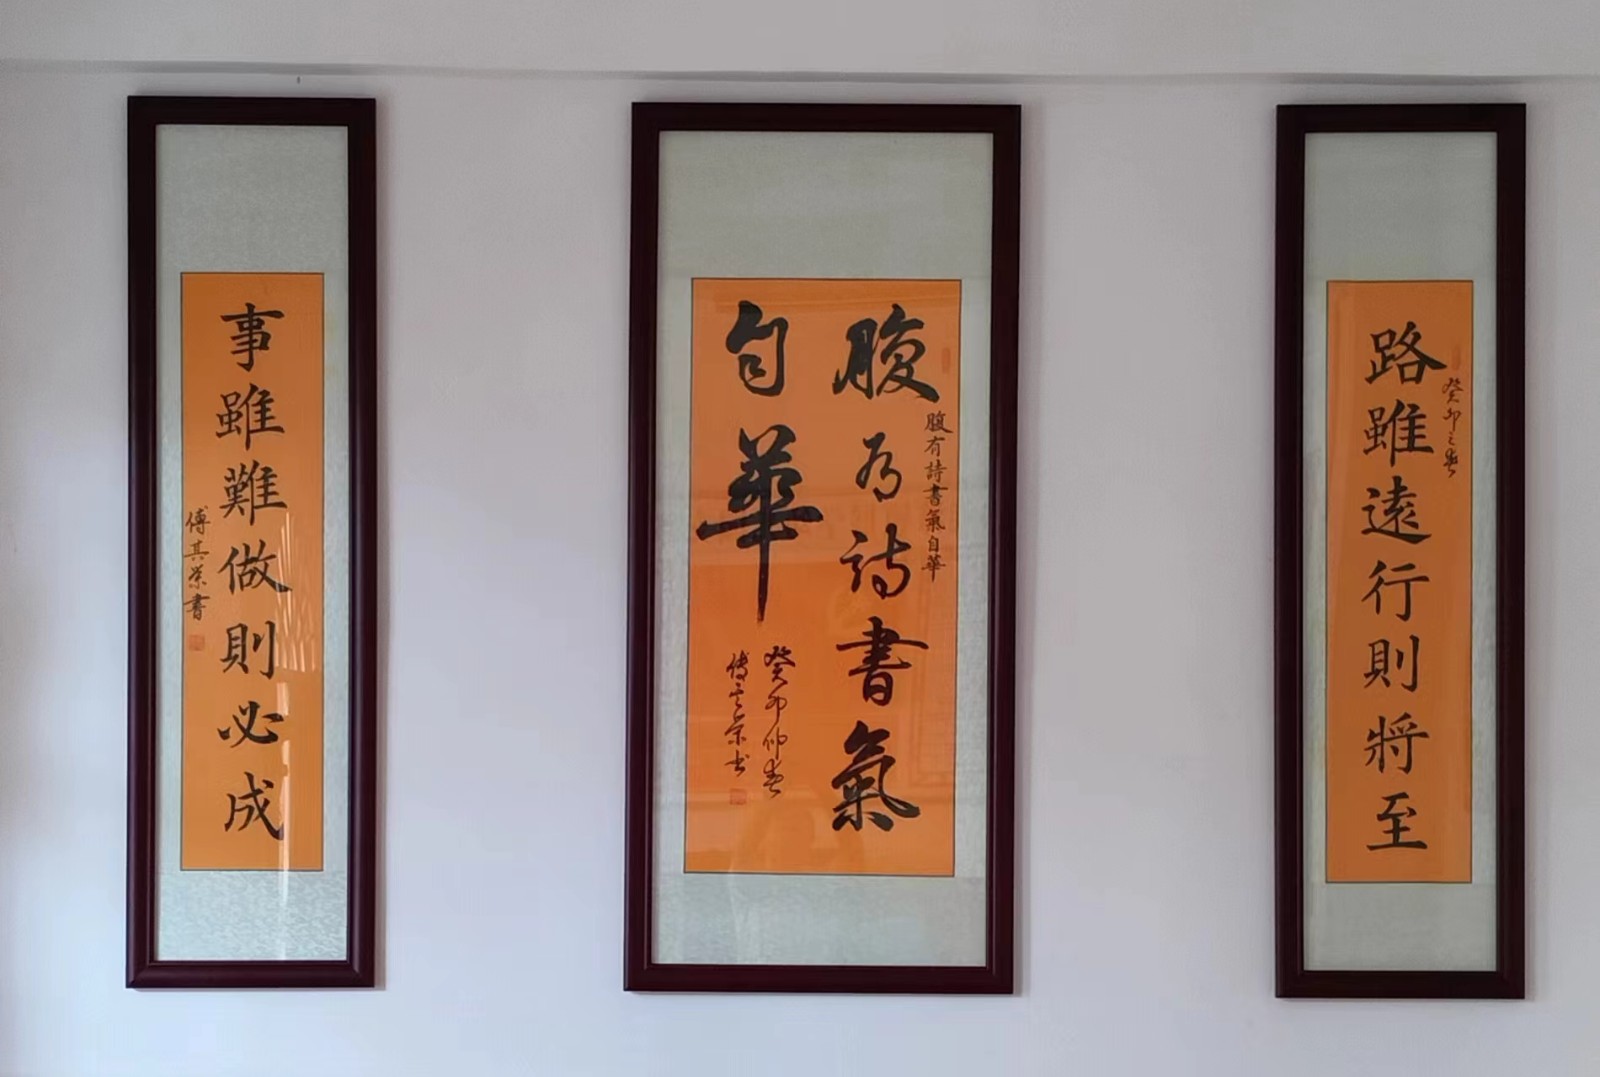 路雖遠行則將至
癸卯之春
腹有詩書氣
腹有詩書氣自華
自華
癸卯仲春
傅其榮书
事雖難做則必成
傅其榮書